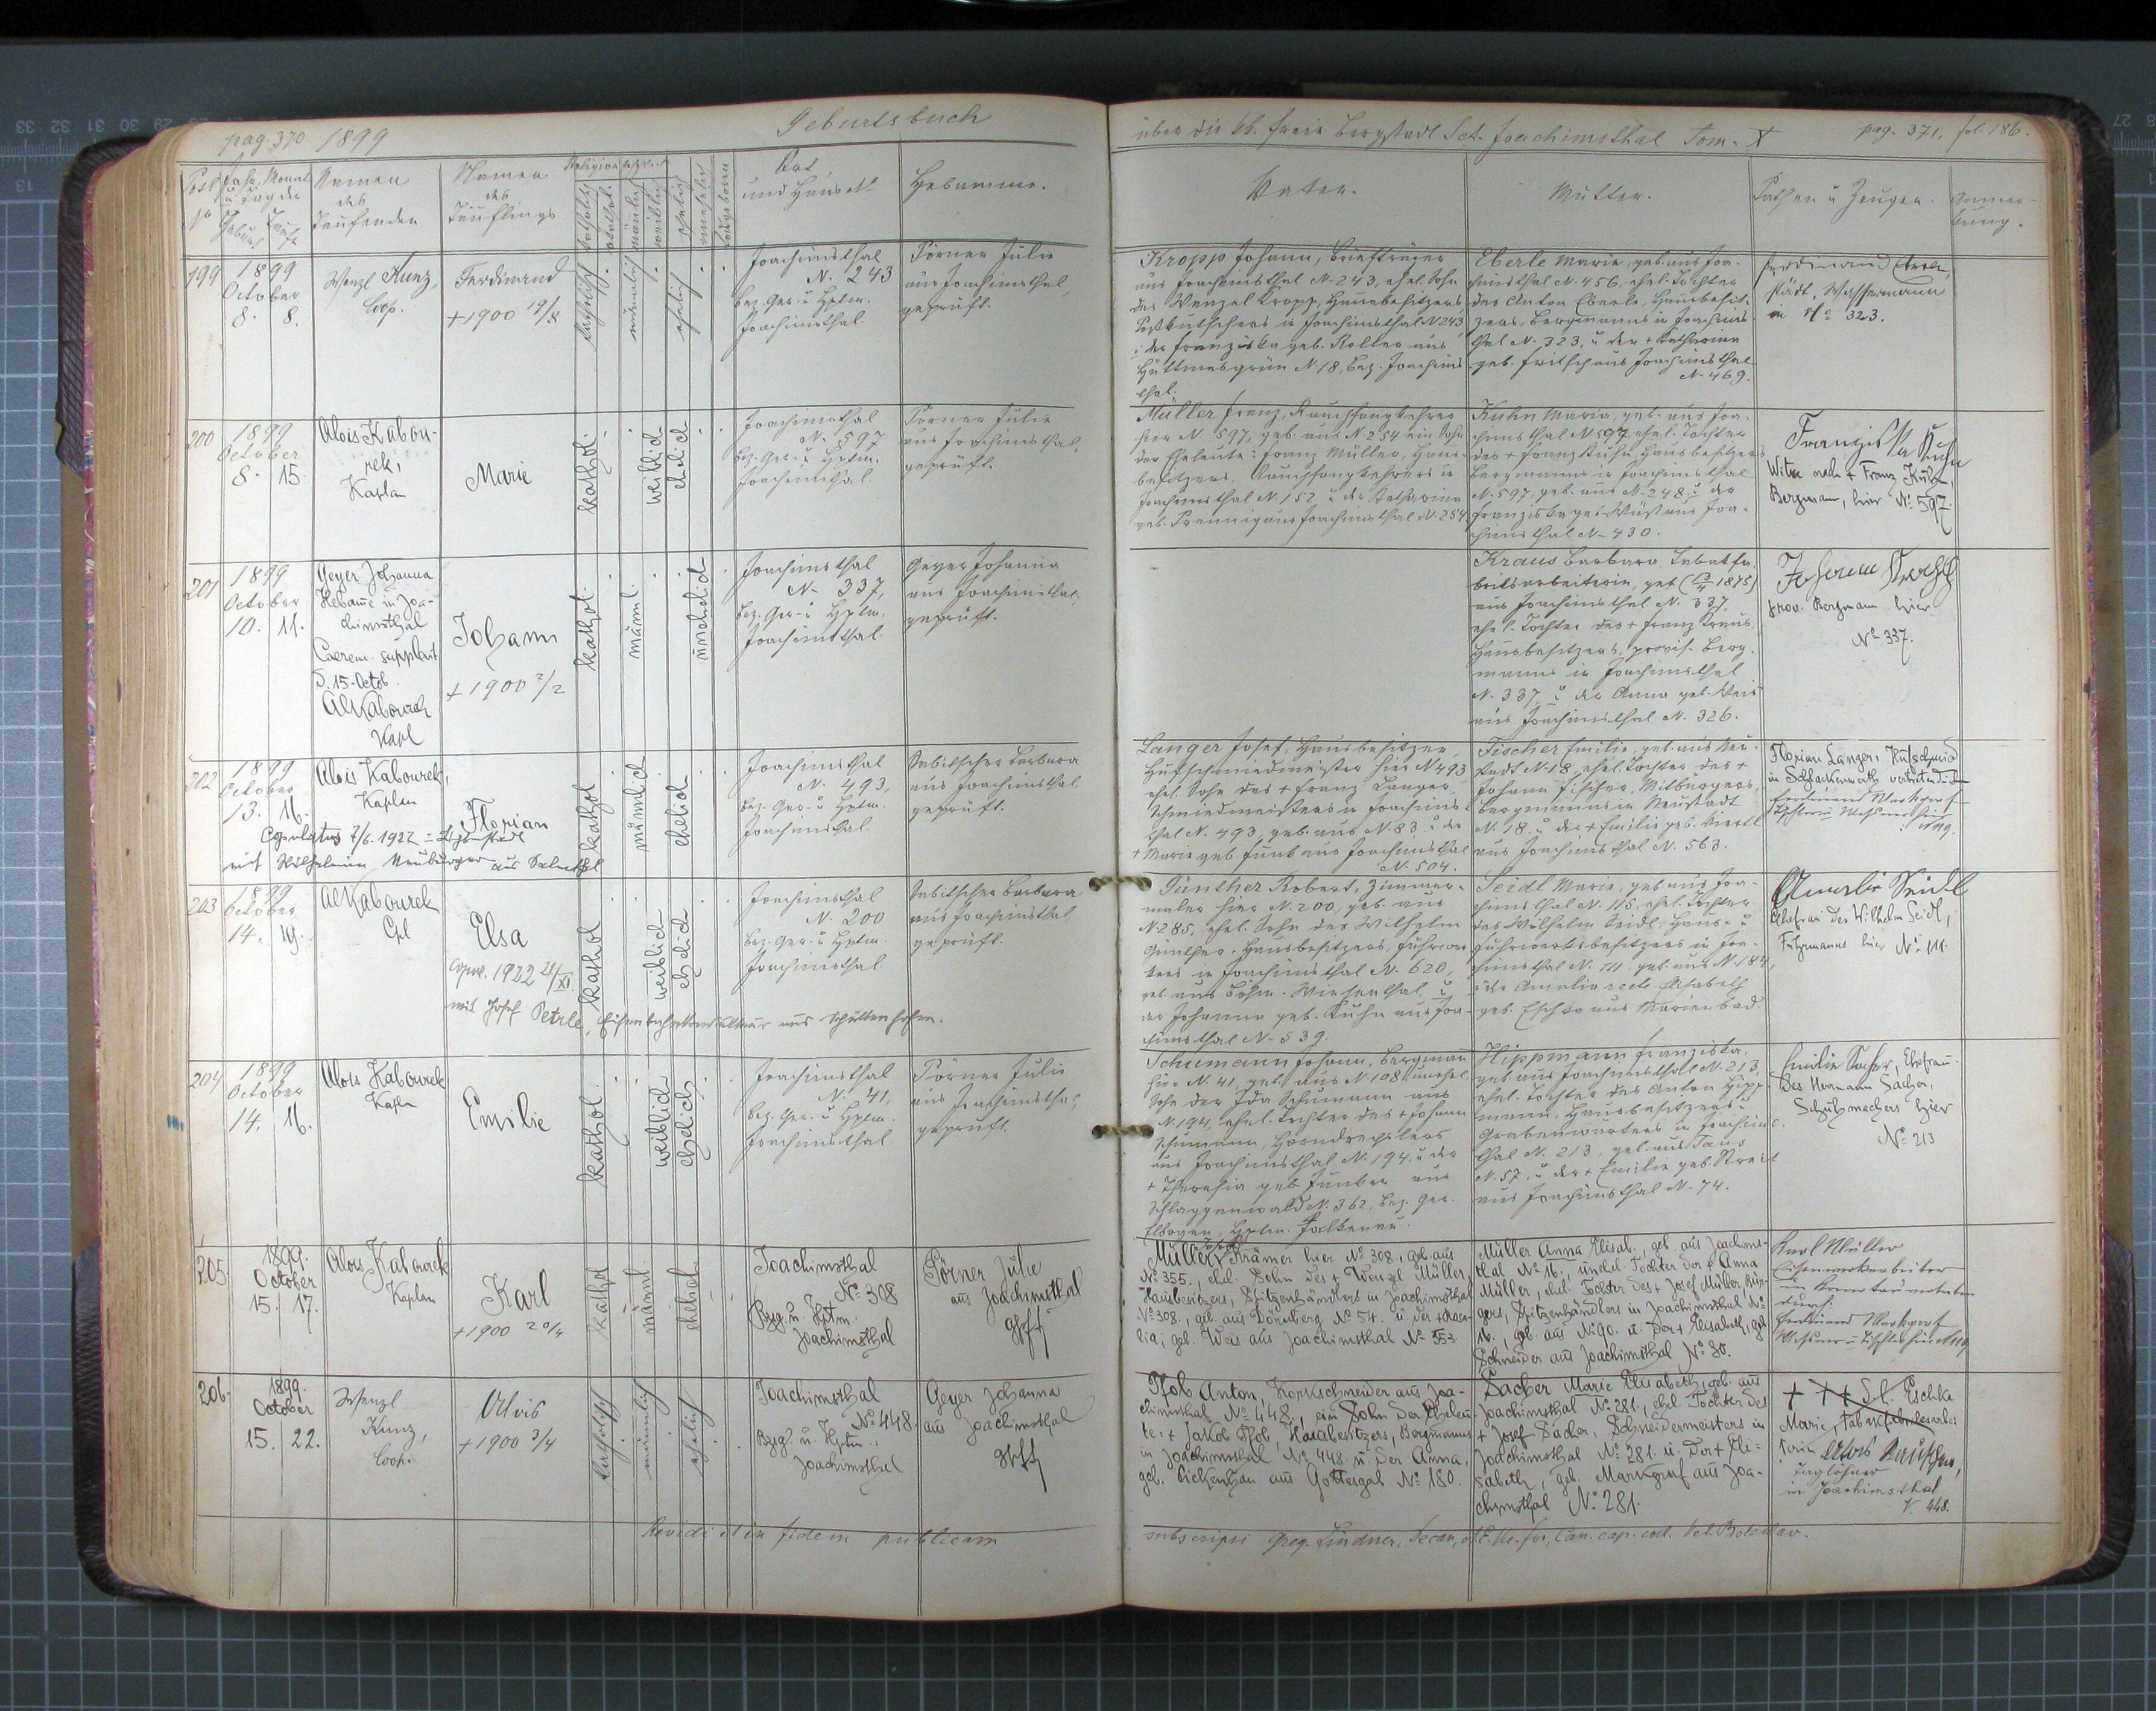 pag. 370 1899
Geburtsbuch
über die kk. freie Bergstadt Sct. Joachimsthal Tom. X
pag. 371, fol. 186.
Namen des Taufenden
Namen des Täuflings
Religion
Ort und Haus N
Hebamme.
Vater.
Mutter.
Pathen u Zeugen.
Anmerkung.
199
1899
October
8. 8.
Wenzl Kunz,
Coop.
Ferdinand
katholisch
männlich
ehelich
Joachimsthal
N. 243
Bez. Ger. u Hptm.
Joachimsthal.
Pörner Julie
aus Joachimsthal,
geprüft.
Kropp Johann, Briefträger
aus Joachimsthal N. 243, ehel. Sohn
des Wenzel Kropp, Hausbesitzers,
Postkutschers in Joachimsthal N 243
u der Franziska geb. Koller aus
Hüttmesgrün N 18, Bez. Joachims
thal.
Eberle Marie, geb. aus Joa-
chimsthal N. 456, ehel. Tochter
des Anton Eberle, Hausbesit-
zers, Bergmanns in Joachims
thal N. 323, u der + Katharina
geb. Fritsch aus Joachimsthal
N. 469.
Ferdinand
städt. Wassermann
in No 323.
200
1899
October
8. 15.
Alois Kabou-
rek,
Kaplan
Marie
kathol.
weiblich
ehelich
Joachimsthal
N. 597
Bez. Ger. u Hptm.
Joachimsthal.
Pörner Julie
aus Joachimsthal,
geprüft.
Müller Franz, Rauchfangkehrer
hier N. 597, geb. aus N 254 ein Sohn
der Eheleute: Franz Müller, Haus-
besitzers, Rauchfangkehrers in
Joachimsthal N. 152 u der Katharina
geb. aus Joachimsthal N. 254
Kuhn Maria, geb. aus Joa-
chimsthal N 597, ehel. Tochter
des + Franz Kuhn Hausbesitzers
Bergmanns in Joachimsthal
N. 597, geb. aus N. 248 u der
Franziska geb. aus Joa-
chimsthal N. 430.
Franziska Kuhn
Witwe nach + Franz Kuhn,
Bergmann, hier No 597.
201
1899
October
10. 11.
Geyer Johanna
Hebamme in Joa-
chimsthal
Caerem. supplevit
d. 15. Octob.
Al Kabourek
Kapl
Johann
+ 1900 2/2
kathol.
männl.
unehelich
Joachimsthal
N. 337,
Bez. Ger. u Hptm.
Joachimsthal.
Geyer Johanna
aus Joachimsthal,
geprüft.
Kraus Barbara, Tabakfa-
briksarbeiterin, geb.
aus Joachimsthal N. 337,
ehel. Tochter des + Franz Kraus,
Hausbesitzers, provis. Berg-
manns in Joachimsthal
N. 337, u der Anna geb. Weis
aus Joachimsthal N. 326.
prov. Bergmann hier
No 337.
202
1899
October
13. 16.
Alois Kabourek,
Kaplan
Florian
Copulatus 7/6. 1922
mit Wilhelmine Neuburger aus
kathol
männlich
ehelich
Joachimsthal
N. 493,
Bez. Ger. u Hptm.
Joachimsthal.
Barbara
aus Joachimsthal
geprüft.
Langer Josef, Hausbesitzer,
Hufschmiedmeister hier N 493
ehel. Sohn des + Franz Langer,
Schmiedmeisters in Joachims
thal N. 493, geb. aus N. 83 u der
+ Marie geb Funk aus Joachimsthal
N. 504.
Fischer Emilie, geb. aus Neu-
stadt N. 18, ehel. Tochter des +
Johann Fischer, Mitbürgers,
Bergmanns in Neustadt
N. 18. u der + Emilie geb.
aus Joachimsthal N. 563.
Florian Langer, Hufschmied
in Schlackenwerth vertreten durch
Ferdinand Markgraf
203
1899
October
14. 19.
Al Kabourek
Cpl
Elsa
Copul. 1922 21/XI.
mit Josef Petrle, aus Schüttenhofen.
kathol
weiblich
ehelich
Joachimsthal
N. 200
Bez. Ger. u Hptm.
Joachimsthal
Barbara
aus Joachimsthal
geprüft.
Günther Robert, Zimmer-
maler hier N. 200, geb. aus
N 285, ehel. Sohn des Wilhelm
Günther, Hausbesitzers, Fuhrwer
kers in Joachimsthal N. 620,
geb. aus Böhm. Wiesenthal u
der Johanna geb. Kuhn aus Joa-
chimsthal N. 539.
Seidl Marie, geb. aus Joa-
chimsthal N. 115, ehel. Tochter
des Wilhelm Seidl, Haus- u
Fuhrwerksbesitzers in Joa-
chimsthal N. 111. geb. aus N. 184,
u der Amalia recte Elisabeth
geb. Eschka aus Marienbad.
Amalie Seidl
Ehefrau des Wilhelm Seidl,
Fuhrmanns hier No 111.
204
1899
October
14. 16.
Alois Kabourek
Kapln
Emilie
kathol.
weiblich
ehelich
Joachimsthal
N. 41,
Bez. Ger. u Hptm.
Joachimsthal.
Pörner Julie
aus Joachimsthal,
geprüft.
Schumann Johann, Bergmann
hier N. 41, geb. aus N. 108 unehel.
Sohn der Ida Schumann aus
N. 194, ehel. Tochter des + Johann
Schumann, Horndrechslers
aus Joachimsthal N. 194. u der
+ Theresia geb. Junker aus
Schlaggenwald N. 362, Bez. Ger.
Elbogen, Hptm. Falkenau.
Hippmann Franziska,
geb. aus Joachimsthal N. 213,
ehel. Tochter des Anton Hipp-
mann, Hausbesitzers u
Grabenwärters in Joachims-
thal N. 213, geb. aus Taus
N. 57. u der + Emilie geb.
aus Joachimsthal N. 74.
Emilie Sacher, Ehefrau
des Hermann Sacher,
Schuhmachers hier
No 213
205
1899.
October
15. 17.
Alois Kabourek
Kaplan
Karl
+ 1900 20/4
kathol
männl
ehelich
Joachimsthal
No 308
Bzg. u. Hptm.
Joachimsthal
Pörner Julie
aus Joachimsthal
gpft
Müller Josef, Krämer hier No 308, geb. aus
No 355., ehel. Sohn des + Wenzel Müller,
Hausbesitzers, Spitzenhändlers in Joachimsthal
No 308., geb. aus Dürnberg No 54. u. der + Rosa-
lia, geb. Weis aus Joachimsthal No 353.
Müller Anna Elisab., geb. aus Joachims-
thal No 16., unehel. Tochter der + Anna
Müller, ehel. Tochter des + Josef Müller, Bür-
gers, Spitzenhändlers in Joachimsthal No
16., geb. aus No 90. u. der + Elisabeth, geb.
Schneider aus Joachimsthal No 30.
Karl Müller
Eisenwerkarbeiter
durch:
Ferdinand Markgraf
206.
1899.
October
15. 22.
Wenzl
Kunz,
Coop.
Alois
+ 1900 3/4
katholisch
männlich
ehelich
Joachimsthal
No 448.
Bzg. u. Hptm.
Joachimsthal
Geyer Johanna
aus Joachimsthal
gpft
Pfob Anton, Korkschneider aus Joa-
chimsthal No 448., ein Sohn der Eheleu-
te: + Jakob Pfob, Hausbesitzers, Bergmanns
in Joachimsthal No 448 u. der Anna,
geb. Lickenhan aus Gottesgab No 180.
Sacher Marie Elisabeth, geb. aus
Joachimsthal No 281., ehel. Tochter des
+ Josef Sacher, Schneidermeisters in
Joachimsthal No 281 u. der + Eli-
sabeth, geb. Markgraf aus Joa-
chimsthal No 281.
+ + + Eschka
Marie
Alois
Taglöhner
in Joachimsthal
N. 448.
Revidi et in fidem publicam
subscripsi Greg. Lindner, Decan,